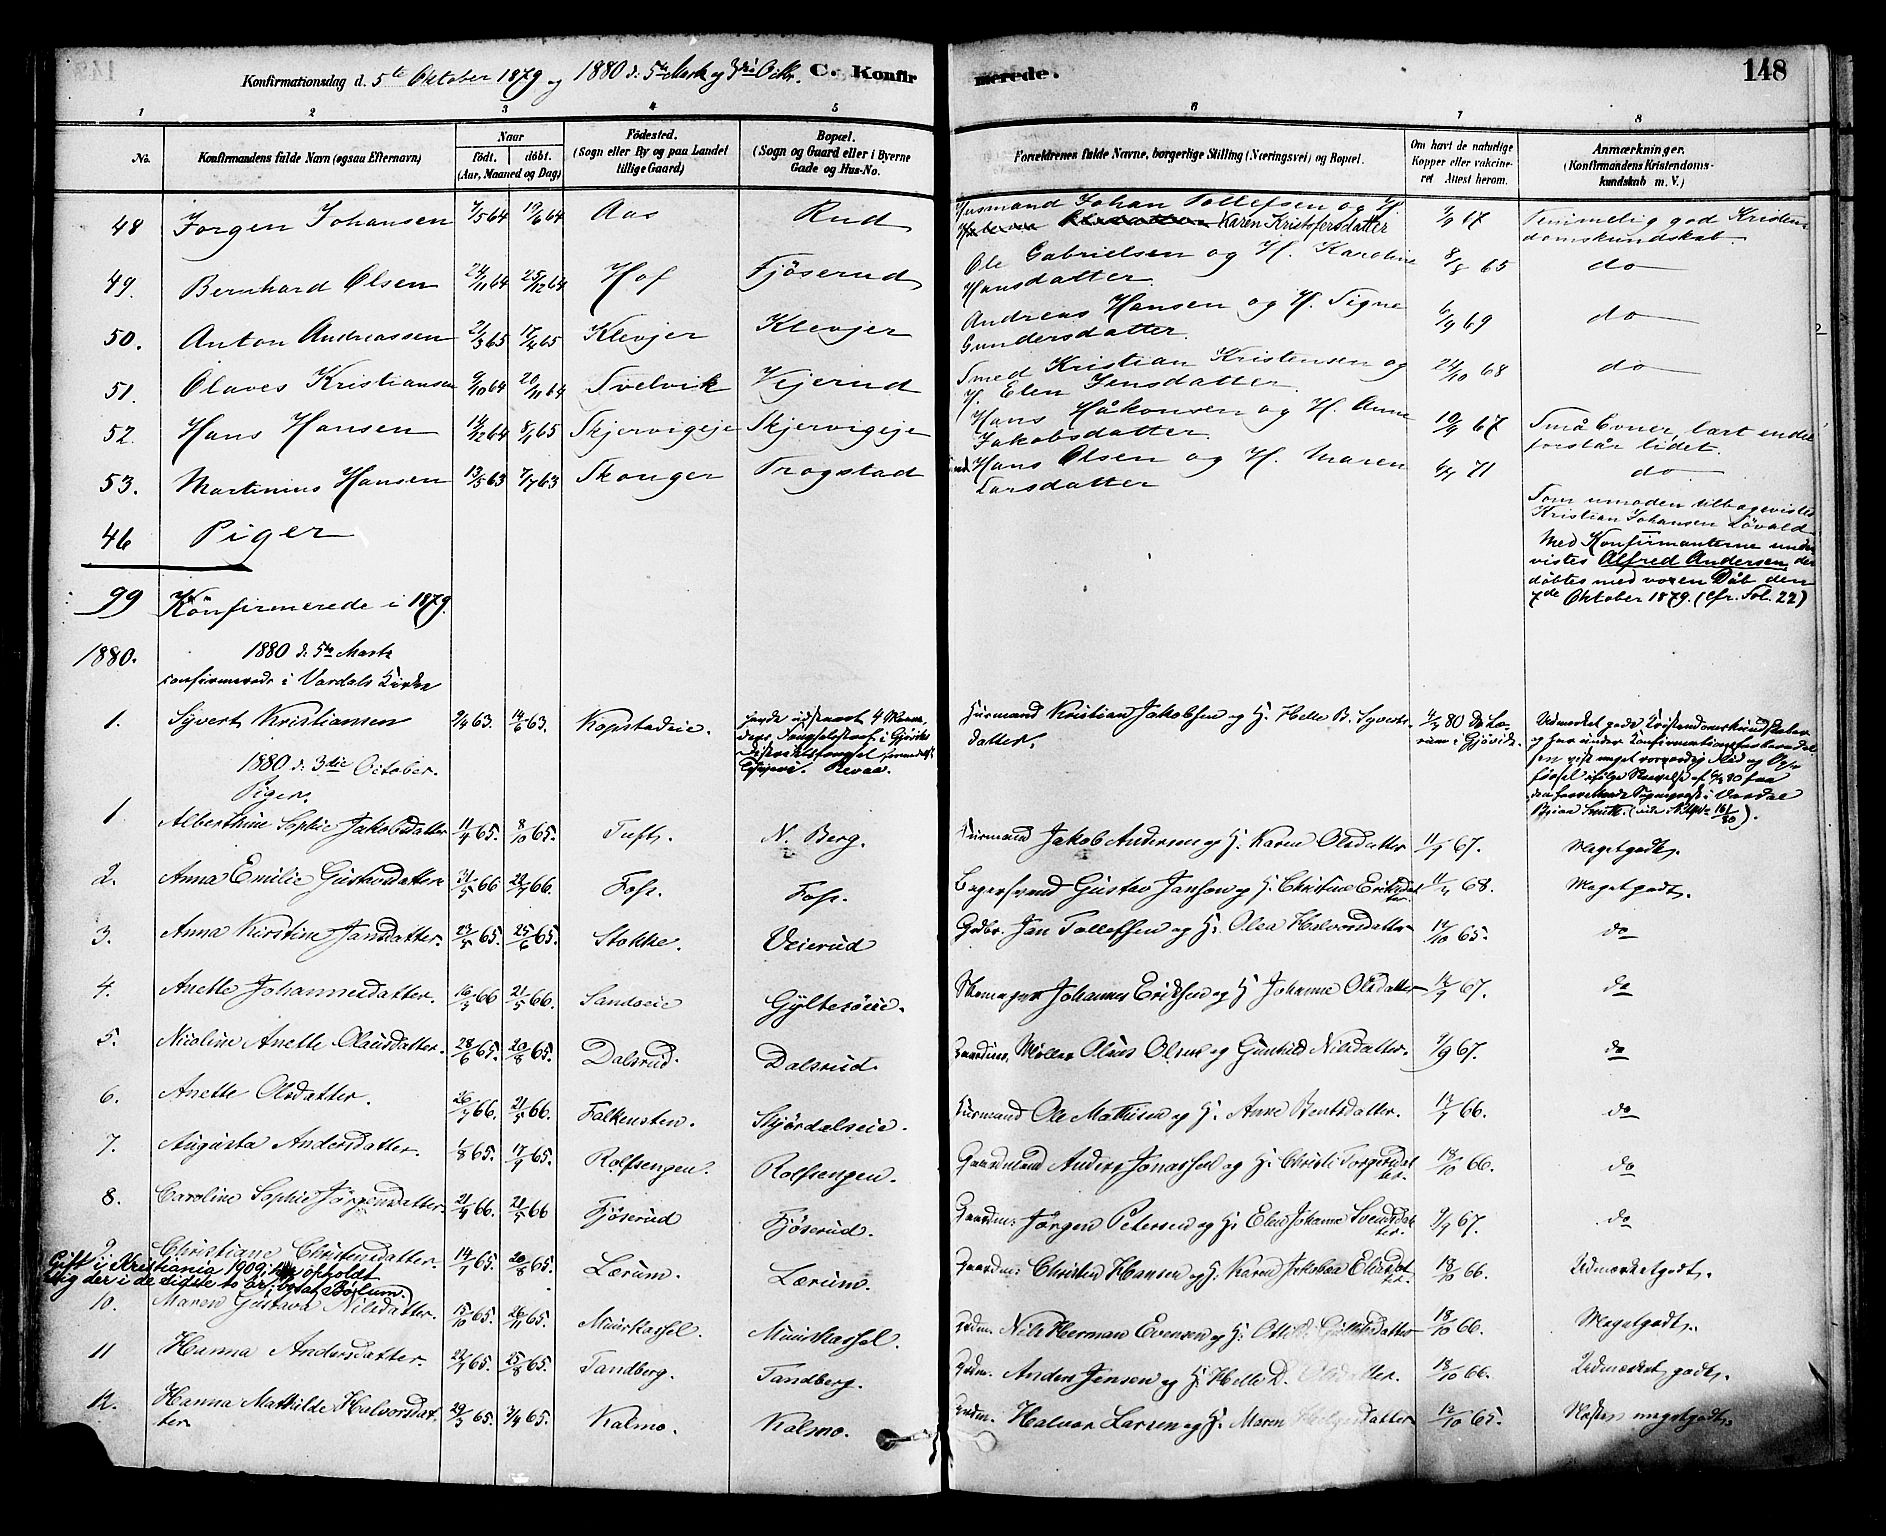 Konfirmationsdag d. 5te Oktober 1879 og 1880 d. 5te Marts og 3die Octbr. C. Konfirmerede. 148
1 2 3 4 5 6 7 8
No. Konfirmandens fulde Navn (ogsaa Efternavn) Naar født. døbt. (Aar, Maaned og Dag) Fødested. (Sogn eller By og paa Landet tillige Gaard) Bopæl. (Sogn og Gaard eller i Byerne Gade og Hus-No. Forældrenes fulde Navne, borgerlige Stilling (Næringsvei) og Bopæl. Om havt de naturlige Kopper eller vakcineret Attest herom. Anmærkninger. (Konfirmandens Kristendomskundskab m. V.)
48 Jørgen Johansen 7/5 64 19/6 64 Aas Rud Husmand Johan Tollefsen og H.
Karen Kristofersdatter 7/9 67 Temmelig god Kristen
domskundskab.
49. Bernhard Olsen 24/11 64 25/12 64 Hof Fjøserud Ole Gabrielsen og H. Karoline
Hansdatter 8/8 65 do
50. Anton Andreassen 21/3 65 17/4 65 Klevjer Klevjer Andreas Hansen og H. Signe
Gundersdatter 6/9 69 do
51. Olaves Kristiansen 9/10 64 20/11 64 Svelvik Vejerud Smed Kristian Kristensen og
H. Elen Jensdatter 24/10 68 do
52. Hans Hansen 14/12 64 8/1 65 Skjervigeje Skjervigeje Hans Håkonsen og H. Anne
Jakobsdatter 10/9 67 Små Evner, lært endel
forstår lidet.
53. Martinius Hansen 13/5 63 7/7 63 Skonger Trogstad Hans Olsen og H. Maren
Larsdatter 6/4 71 do
46 Piger
Som umoden tilbagevistes
Kristian Johansen Løvald
Med Konfirmanterne under
vistes Alfred Andersen der
døbtes med voxen Dåb den
7de Oktober 1879. (cfr. Fol. 22)
99 Konfirmerede i 1879.
1880. 1880 d. 5te Marts
confirmerede i Vardals Kirke
1. Syvert Kristiansen 9/4 63. 14/6 63. Kopstadeie. Husmand Kristian Jakobsen og H. Helle B. Syverts
datter. 4/3 80
havde udstaaet 4 Maane
ders Fængselsstraf i Gjøviks
Distriktsfængsel
Revaa.
Udmærket gode Kristendomskundskaber
og har under Konfirmationsforberedel
sen vist meget
1880 d. 3die October.
Piger.
1. Alberthine Sophie Jakobsdatter 11/4 65. 8/10 65. Tuft. N. Berg. Husmand Jakob Andersen og H. Karen Olsdatter 11/7 67. Megetgodt.
2. Anna Emilie Gustavsdatter 31/5 66 22/7 66. Foss. Foss. Bogersvend Gustav Jansen og H. Christine Eriksdat
ter. 11/4 68. Megetgodt.
3. Anna Kirstine Jansdatter. 23/5 65. 25/6 65. Stokke. Veierud Gdbr. Jan Tollefsen og H. Olea Halvorsdatter 12/10 65. do
4. Anette Johannesdatter. 16/3 66 21/5 66. Sandseie Gyltesøeie. Skomager Johannes Eriksen og H. Johanne Olsdatter 12/9 67. do
5. Nicoline Anette Olausdatter. 28/6 65. 20/8 65. Dalsrud. Dalsrud. Møller Olaus Olsen og Gunhild Nilsdatter. 9/9 67. do
6. Anette Olsdatter. 26/3 66. 21/5 66. Falkensten. Skjørdalseie. Husmand Ole Mathisen og H. Anne Bentsdatter. 17/7 66. do
7. Augusta Andersdatter. 1/8 65. 17/9 65. Rolfsengen. Rolfsengen. Gaardmand Anders Jonassen og H. Christi Torgersdat
ter. 18/10 66. do
8. Caroline Sophie Jørgensdatter. 21/4 66. 21/5 66 Fjøserud Fjøserud. Gaardm. Jørgen Petersen og H. Elen Johanne Svendsdat
ter. 9/7 67. do
9. Christiane Christensdatter. 14/7 65. 20/8 65. Lærum. Lærum. Gaardm. Christen Hansen og H. Karen Jakobea Elisdat
ter. 18/10 66. Udmærketgodt.
Gift i Kristiania 1909; har opholdt
sig der i de sidste 10 år,
10. Maren Gustava Nilsdatter. 15/10 65. 26/11 65. Muurkassel. Muurkassel. Grdm. Nils Herman Evensen og H. 18/10 66. Megetgodt.
11 Hanna Andersdatter. 22/7 65. 25/8 65. Tandberg. Tandberg. Grdm. Anders Jensen og H. Helle D. Olsdatter. 18/10 66. Udmærket godt.
12. Hanna Mathilde Halvorsdat
ter 29/3 65. 3/4 65. Kalmo. Kalmo. Grdm. Halvor Larsen og H. Maren Helgesdatter 12/10 65. Næsten megetgodt.